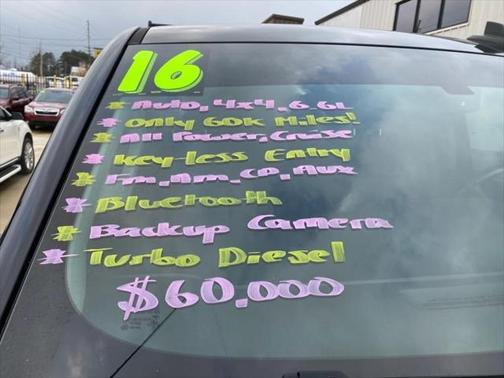 16
* Auto, 4x4, 6.6L
* Only 60K Miles!
* All Power, Cruise
* Key-less Entry
* Fm, Am, CD, Aux
* Bluetooth
* Backup Camera
* Turbo Diesel
$60,000